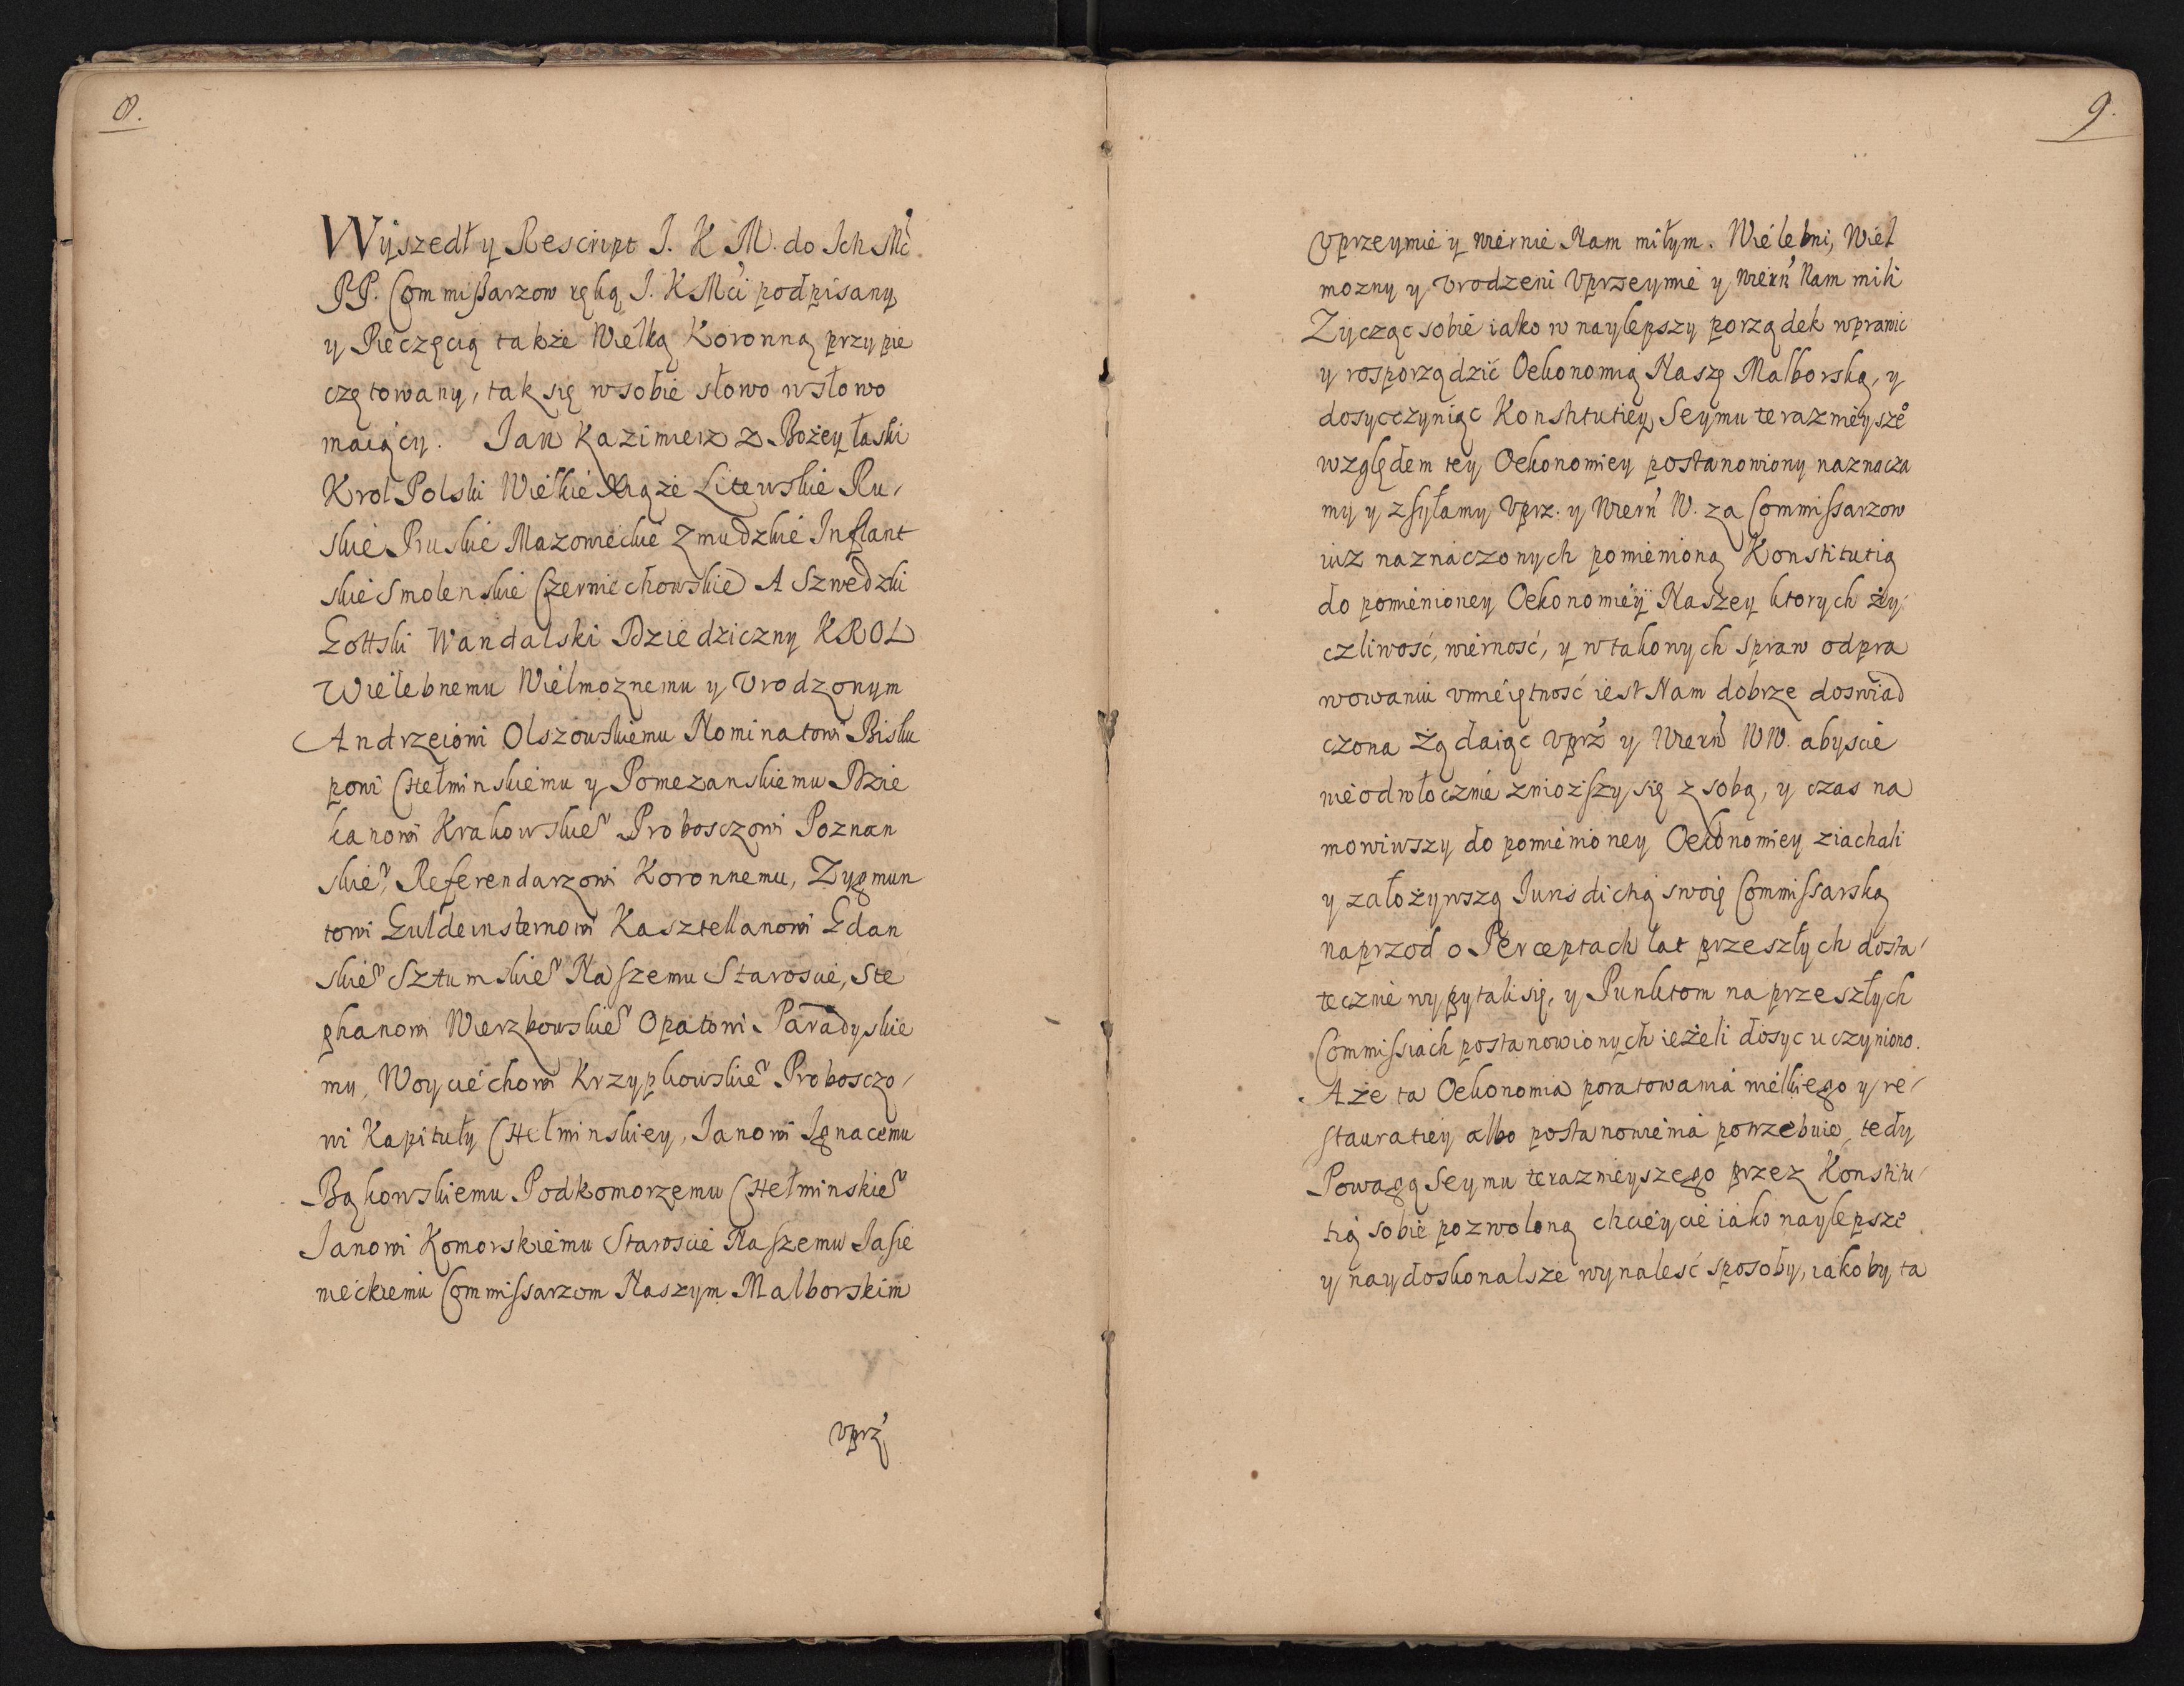 8.
Wyszedł y Rescript J. K M. do Ich Mć
PP. Commissarzow ręką J. K Mći podpisany
y Pieczęcią także Wielką Koronną przypie
czętowany, tak się w sobie słowo w słowo
maiący. Jan Kazimierz z Bożey łaski
Krol Polski Wielkie Xiąże Litewskie Ru,
skie Pruskie Mazowieckie Zmudzkie Inflant
skie Smolenskie Czerniechowskie A Szwedzki
Gottski Wandalski Dziedziczny KROL
Wielebnemu Wielmoznemu y Vrodzonym
Andrzeiowi Olszowskiemu Nominatowi Bisku
powi Chełminskiemu y Pomezanskiemu Dzie
kanowi Krakowskie° Proboszczowi Poznan
skie°, Referendarzowi Koronnemu, Zygmun
towi Guldeinsternowi Kasztellanowi Gdan
skie° Sztumskie° Naszemu Staroscie, Ste
phanowi Wierzbowskie° Opatowi Paradyskie
mu, Woyciechowi Krzypkowskie° Probosczo,
wi Kapituły Chełminskiey, Janowi Ignacemu
Bąkowskiemu Podkomorzemu Chełminskie°
Janowi Komorskiemu Staroscie Naszemu Jasie
nieckiemu Commissarzom Naszym Malborskim
vprz
9.
Vprzeymie y wiernie Nam miłym. Wielebni, Wiel
mozny y Vrodzeni Vprzeymie y Wiern Nam mili
Zycząc sobie iako w naylepszy porządek wprawic
y rosporządzić Oekonomią Naszę Malborską, y
dosyc czyniąc Konstitutiey Seymu terazmieysze°
względem tey Oekonomiey postanowiony naznacza
my y zsyłamy Vprz. y Wiern W. za Commissarzow
iuz naznaczonych pomienioną Konstitutią
do pomienioney Oekonomiey Naszey ktorych ży,
czliwość, wierność, y w takowych spraw odpra
wowaniu vmieiętność iest Nam dobrze doswiad
czona Żądaiąc Vprz y Wiern WW. abyscie
nieodwłocznie zniozszy się z sobą, y czas na
mowiwszy do pomienioney Oekonomiey ziachali
y załozywszą Iurisdictią swoię Commissarską
naprzod o Perceptach lat przeszłych dosta,
tecznie wypytali się, y Punktom na przeszłych
Commissiach postanowionych ieżeli dosyc uczyniono.
A że ta Oekonomia poratowania wielkiego y re,
stauratiey albo postanowienia potrzebuie, tedy
Powagą Seymu terazmieyszego przez Konstitu,
tią sobie pozwoloną chcieycie iako naylepsze
y naydoskonalsze wynaleść sposoby, iakoby ta